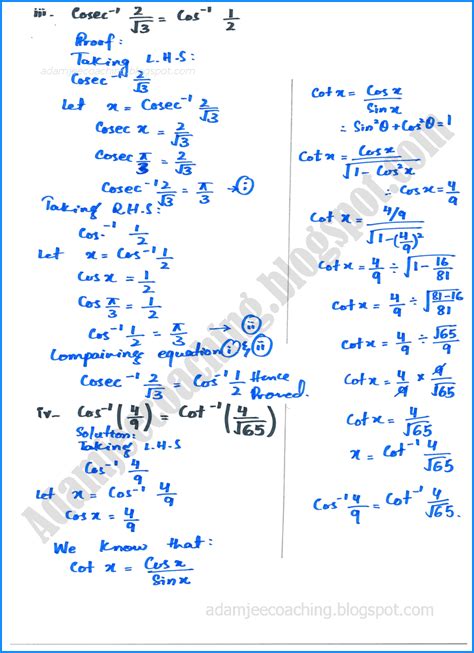 iii. Cosec⁻¹ 2/√3 = Cos⁻¹ 1/2
Proof:
Taking L.H.S:
adamjeecoaching.blogspot.com
Cosec⁻¹ 2/√3
Let x = Cosec⁻¹ 2/√3
Cosec x = 2/√3
Cosec π/3 = 2/√3
Cosec⁻¹ 2/√3 = π/3 → (i)
Taking R.H.S:
Cos⁻¹ 1/2
Let x = Cos⁻¹ 1/2
Cos x = 1/2
Cos π/3 = 1/2
Cos⁻¹ 1/2 = π/3 → (ii)
Compairing equation (i) & (ii)
Cosec⁻¹ 2/√3 = Cos⁻¹ 1/2 Hence Proved.
iv- Cos⁻¹(4/9) = Cot⁻¹(4/√65)
Solution:
Taking L.H.S
Cos⁻¹ 4/9
Let x = Cos⁻¹ 4/9
Cos x = 4/9
We know that:
Cot x = Cos x/Sin x
Cot x = Cos x/Sin x
∴ Sin²θ + Cos²θ = 1
Cot x = Cos x/√(1 - Cos²x)
∴ Cos x = 4/9
Cot x = (4/9)/√(1 - (4/9)²)
Cot x = 4/9 ÷ √(1 - 16/81)
Cot x = 4/9 ÷ √((81 - 16)/81)
Cot x = 4/9 ÷ √65/9
Cot x = 4/9 × 9/√65
Cot x = 4/√65
x = Cot⁻¹ 4/√65
Cos⁻¹ 4/9 = Cot⁻¹ 4/√65.
Adamjeecoaching.blogspot.com
adamjeecoaching.blogspot.com